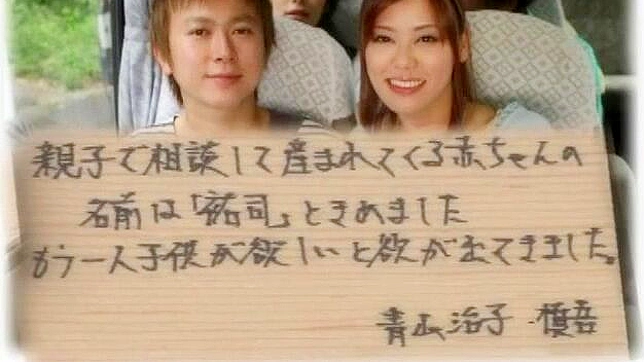 親子で相談して産まれてくる赤ちゃんの
名前は「祐司」ときめました
もう一人子供が欲しいと欲が出てきました。
青山治子 慎吾